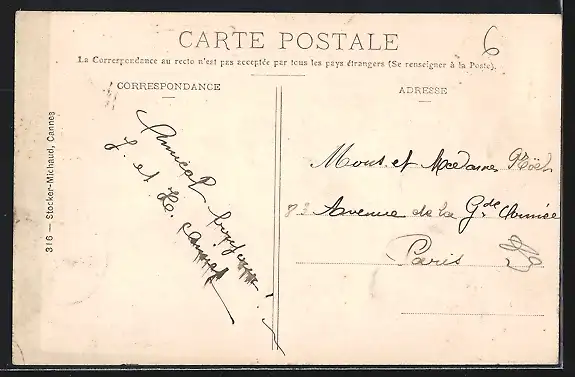 6
CARTE POSTALE
La Correspondance au recto n'est pas acceptée par tous les pays étrangers (Se renseigner à la Poste).
CORRESPONDANCE
ADRESSE
316 — Stocker-Michaud, Cannes
Amical
J. et H.
Mons. et Madame Noël
83 Avenue de la Gde Armée
Paris